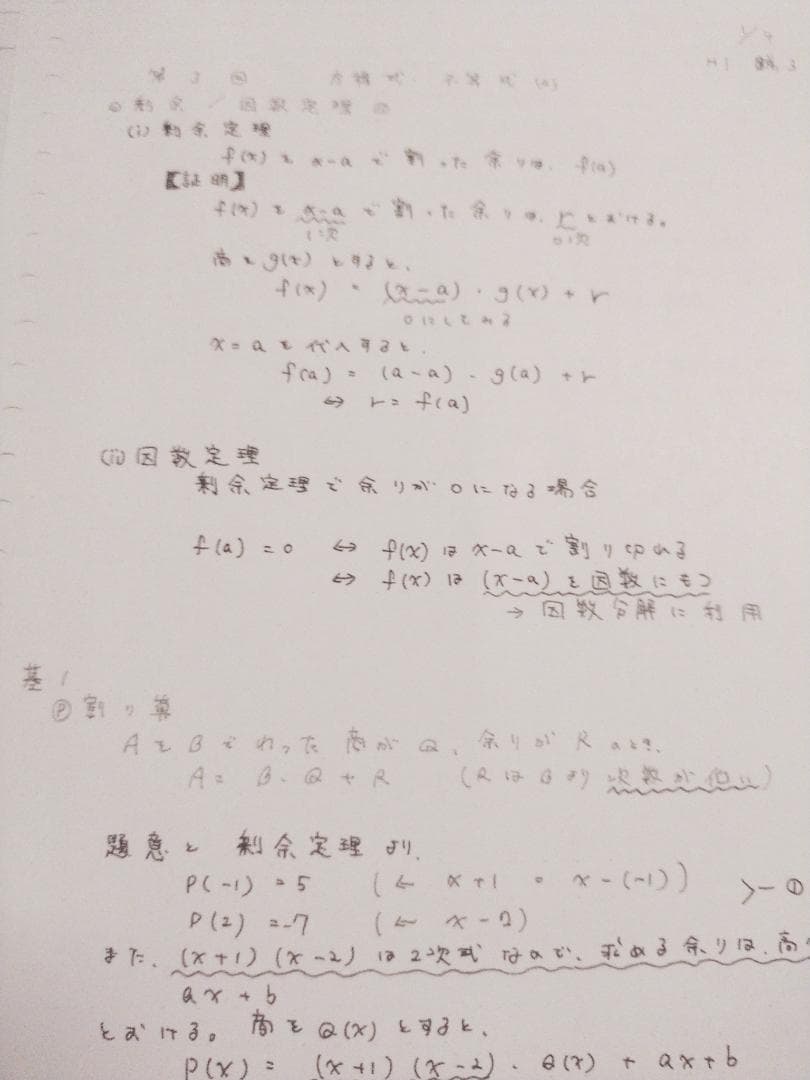 第3回 方程式・不等式(2)
剰余/因数定理
(i) 剰余定理
f(x)をx-aで割った余りは、f(a)
【証明】
f(x)をx-aで割った余りは、rとおける。
1次 0次
商をg(x)とすると、
f(x) = (x-a)・g(x)+r
0にしてみる
x=aを代入すると、
f(a) = (a-a)・g(a)+r
⇔ r=f(a)
(ii) 因数定理
剰余定理で余りが0になる場合
f(a)=0 ⇔ f(x)はx-aで割り切れる
⇔ f(x)は(x-a)を因数にもつ
→ 因数分解に利用
基1
Ⓟ割り算
AをBでわった商がQ、余りがRのとき、
A=B・Q+R (RはBより次数が低い)
題意と剰余定理より、
P(-1)=5 (← x+1 = x-(-1))
P(2)=-7 (← x-2)
>-①
また、(x+1)(x-2)は2次式なので、求める余りは、高
ax+b
とおける。商をQ(x)とすると、
P(x) = (x+1)(x-2)・Q(x)+ax+b